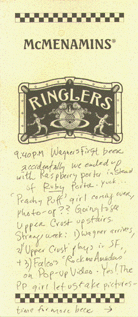 McMENAMINS®
RINGLERS
9:40pm Wagner's first beer
accidentally we ended up
with Raspberry porter instead
of Ruby Porter. Yuk...
'Puffy' girl
Photo-op?? Going to
Upper Crust upstairs.
Stray week: 1) Wagner arrives,
2) Upper Crust plays in SF,
+3) Falco's 'Rock me Amadeus'
on Pop-up Video. Yes! The
PP girl let us take pictures -
time for more beer →